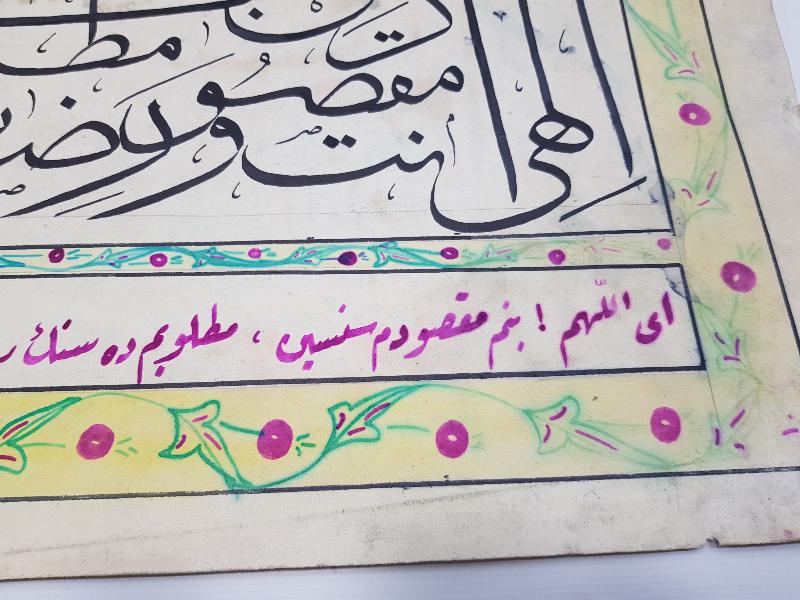 الهی انت
مقصودی و رض
مط
ای اللهم ! بنم مقصودم سنسین ، مطلوبم ده سنك ر